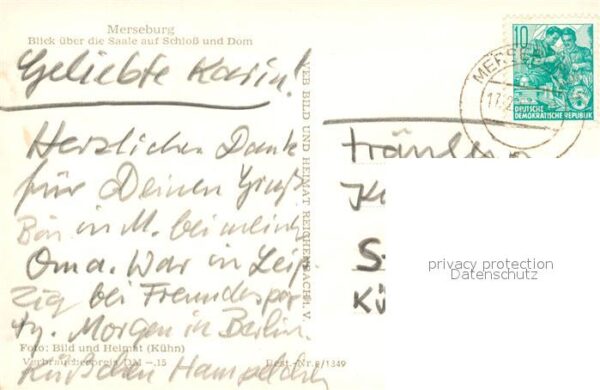 Merseburg
Blick über die Saale auf Schloß und Dom
Geliebte Karin!
Herzlichen Dank
für Deinen Gruß.
Bin in M. bei meiner
Oma. War in Leip-
zig bei Freundespar-
ty. Morgen in Berlin.
Küßchen
Foto: Bild und Heimat (Kühn)
Verbraucherpreis DM -.15
Best.-Nr. 6/1349
VEB BILD UND HEIMAT REICHENBACH I. V.
10
DEUTSCHE
DEMOKRATISCHE REPUBLIK
MERSE
17.2
Fräulein
K
S.
Kü
privacy protection
Datenschutz